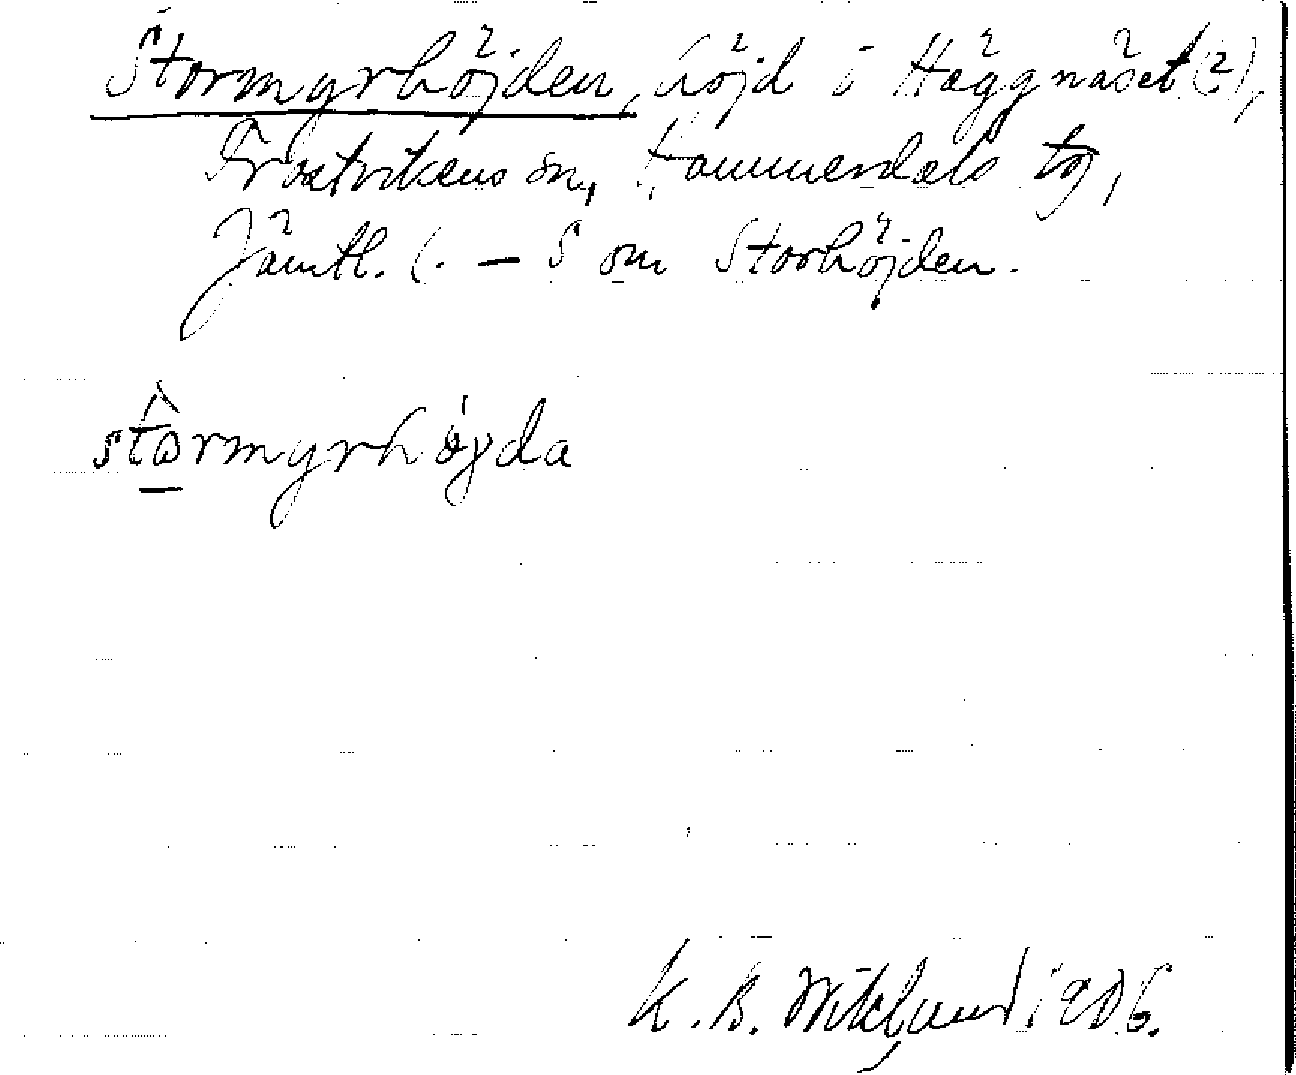 Stormyrhöjden, höjd i Häggnäset (2),
Frostvikens sn, Hammerdals tg,
Jämtl. l. – S om Storhöjden.
stormyrhöjda
K. B. Wiklund 1906.